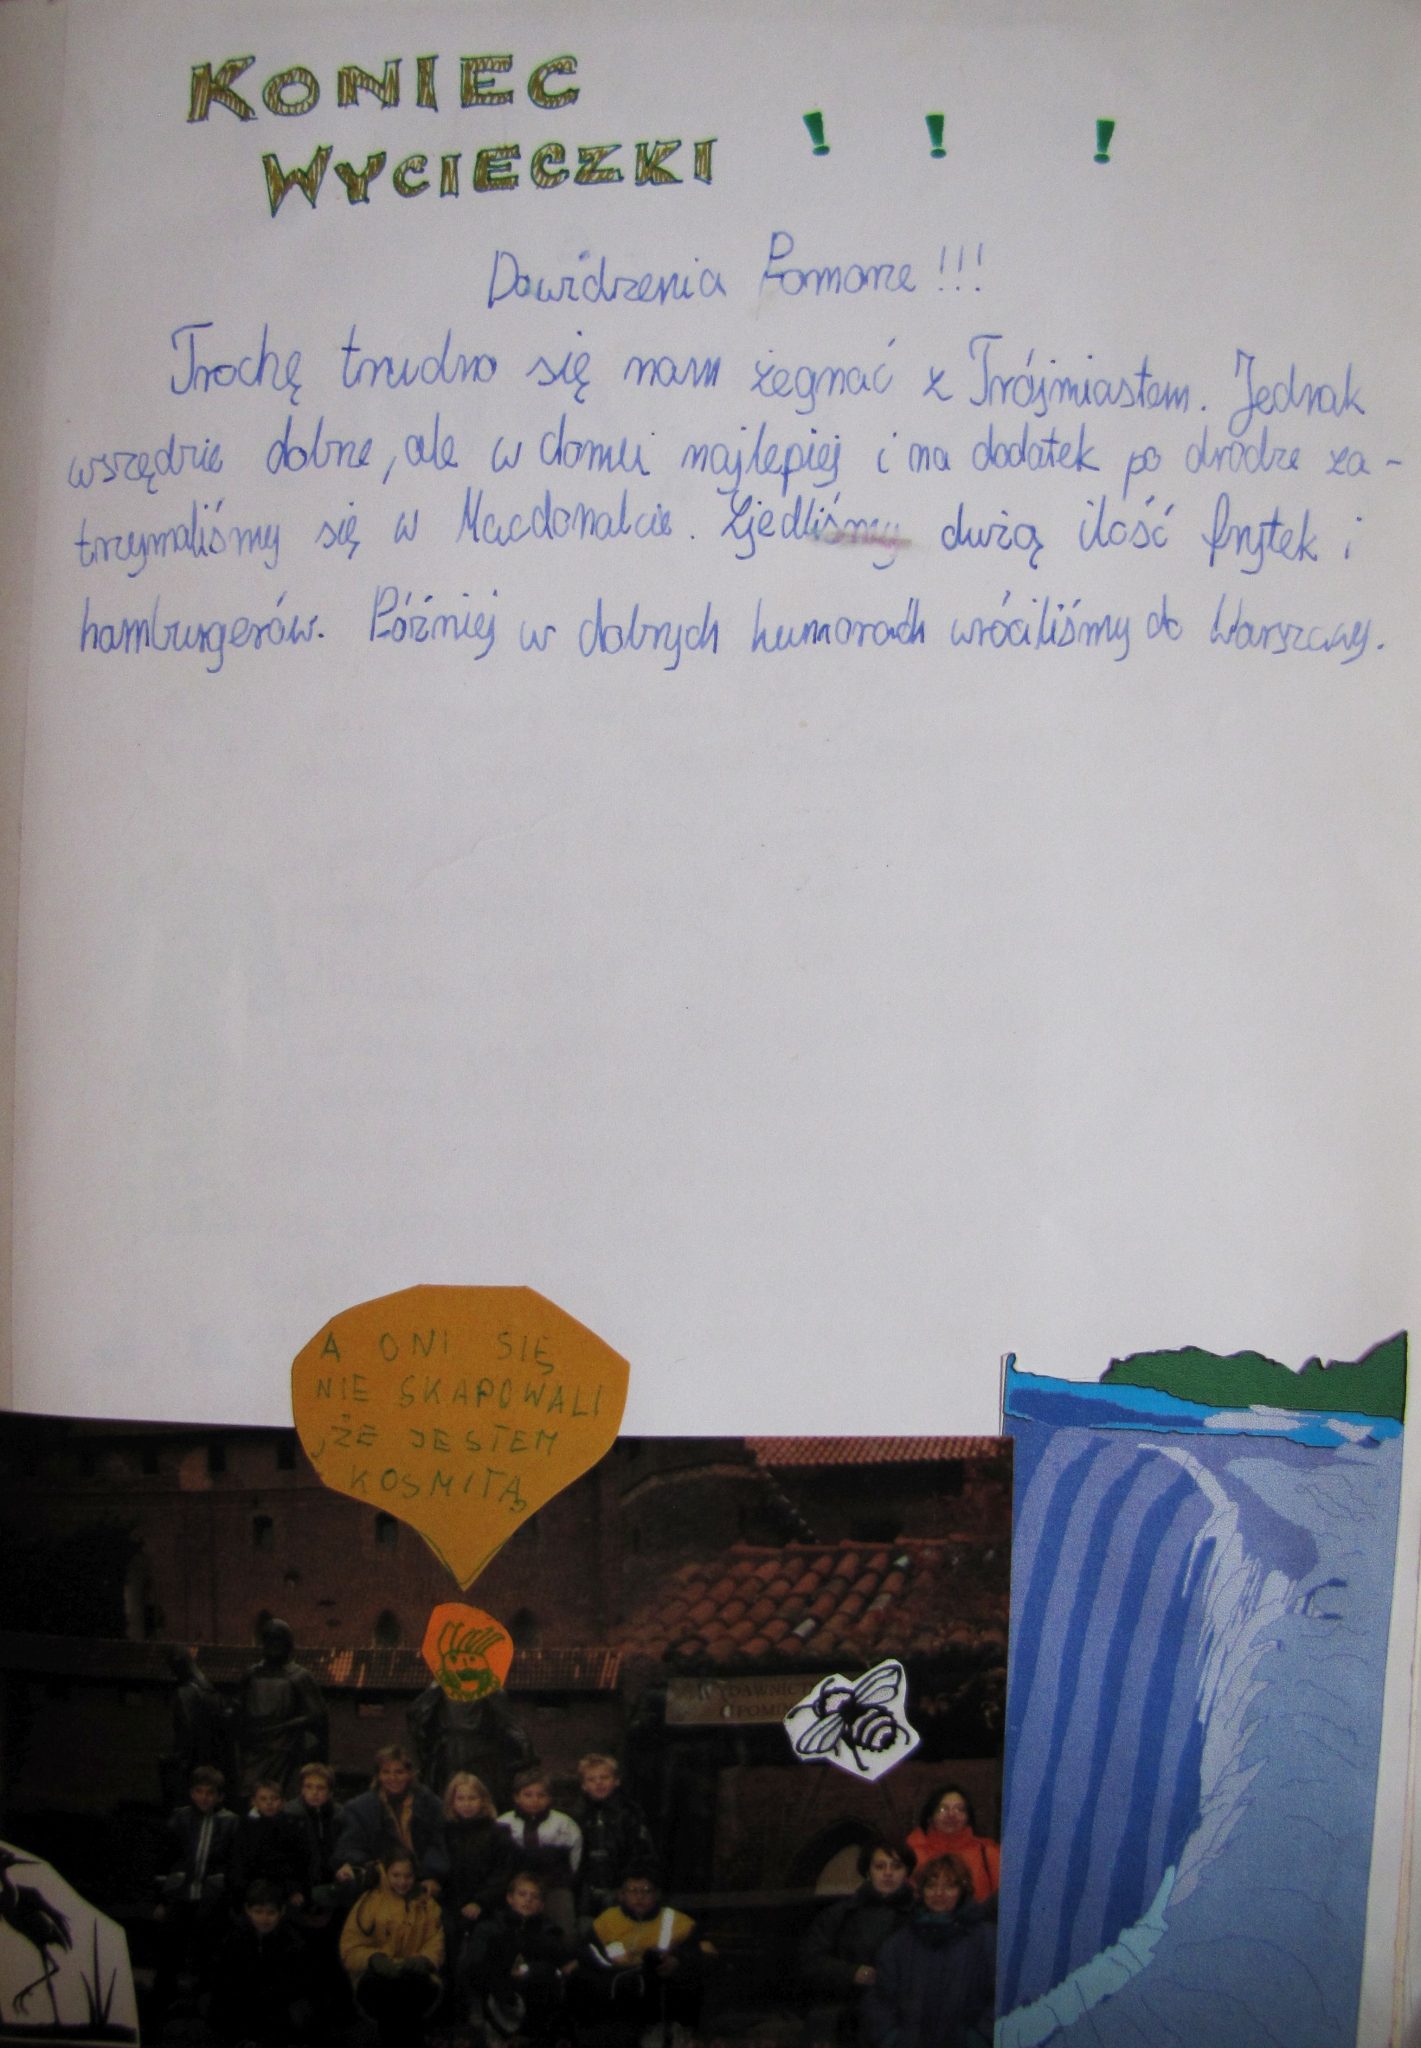 KONIEC
WYCIECZKI ! ! !
Dowidzenia Pomorze!!!
Trochę trudno się nam żegnać z Trójmiastem. Jednak
wszędzie dobrze, ale w domu najlepiej i na dodatek po drodze za-
trzymaliśmy się w Macdonaldzie. Zjedliśmy dużą ilość frytek i
hamburgerów. Później w dobrych humorach wróciliśmy do Warszawy.
A ONI SIĘ
NIE SKAPOWALI
, ŻE JESTEM
KOSMITĄ